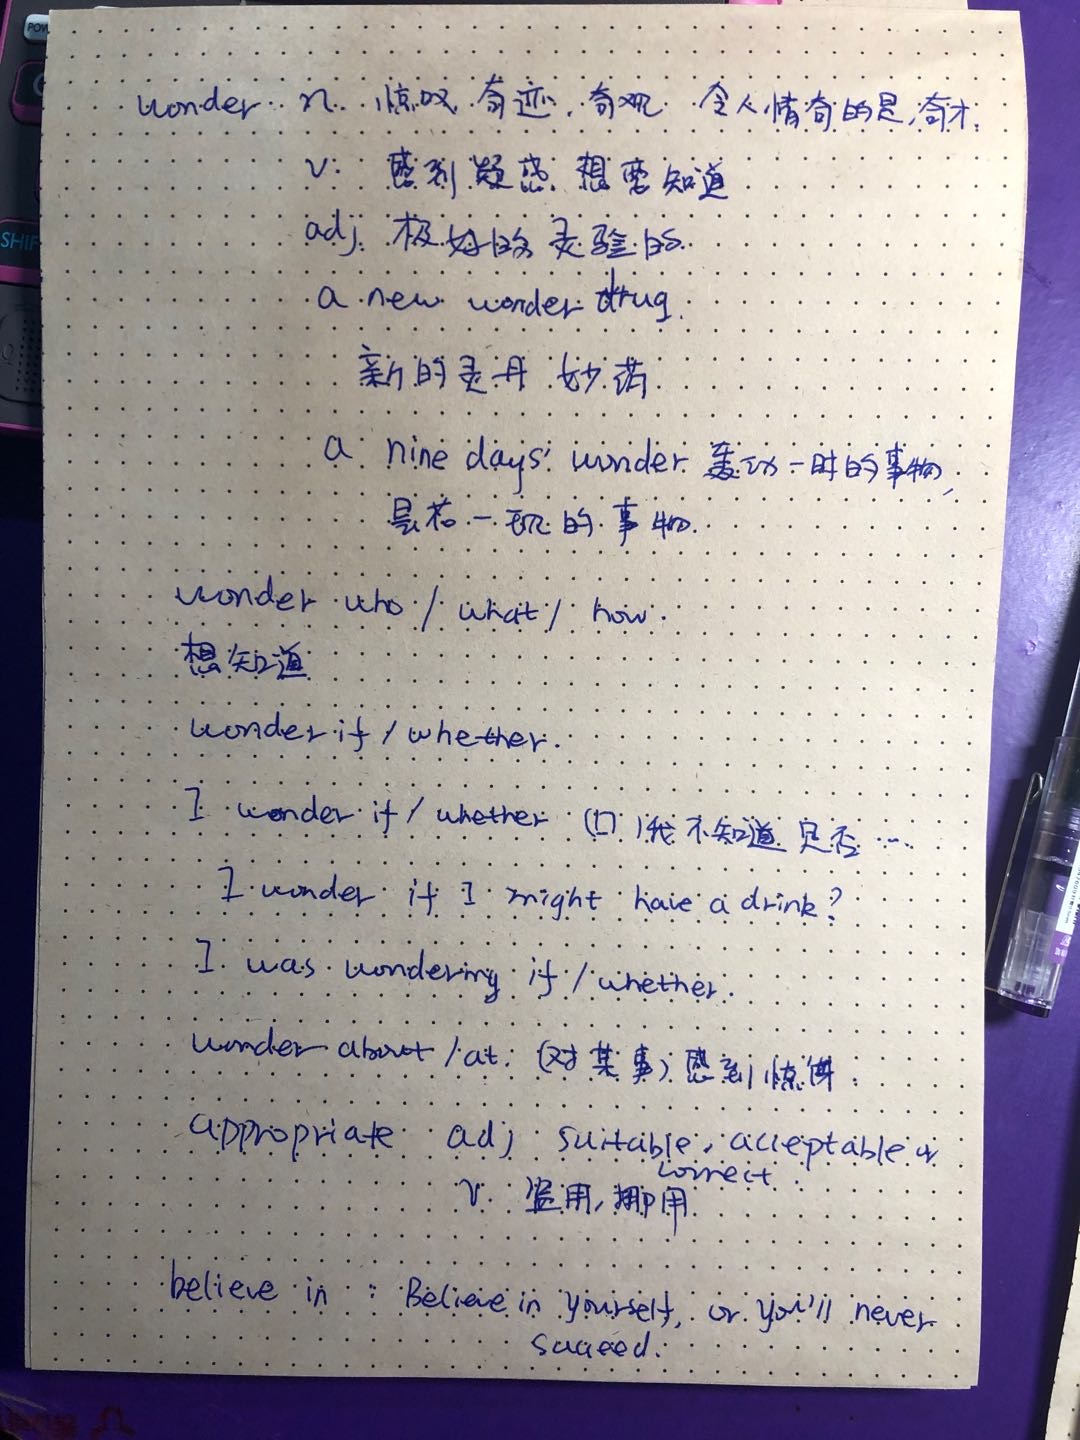 POW
SHIF
wonder n. 惊叹 奇迹, 奇观 令人情奇的是, 奇才.
v. 感到疑惑 想要知道
adj. 极好的 灵验的.
a new wonder drug.
新的灵丹 妙药
a nine days' wonder. 轰动一时的事物,
昙花一现的事物.
wonder who / what / how.
想知道
wonder if / whether.
I wonder if / whether (口) 我不知道 是否 ...
I wonder if I might have a drink?
I was wondering if / whether.
wonder about / at. (对某事) 感到惊讶.
appropriate adj suitable, acceptable or
correct
v. 盗用, 挪用
believe in : Believe in yourself, or you'll never
succeed.